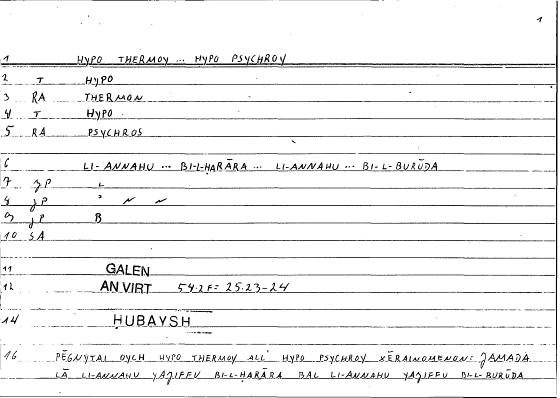 1
1 HYPO THERMOY ... HYPO PSYCHROY
2 T HYPO
3 RA THERMON
4 T HYPO
5 RA PSYCHROS
6 LI-ANNAHU ... BI-L-ḤARĀRA ... LI-ANNAHU ... BI-L-BURŪDA
7 ȝP L
8 ȝP ' ~ ~
9 ȝP B
10 SA
11 GALEN
12 AN VIRT 54.2F = 25.23-24
14 ḤUBAYSH
16 PĒGNYTAI OYCH HYPO THERMOY ALL' HYPO PSYCHROY XĒRAINOMENON: ȝAMADA
LĀ LI-ANNAHU YAȝIFFU BI-L-ḤARĀRA BAL LI-ANNAHU YAȝIFFU BI-L-BURŪDA